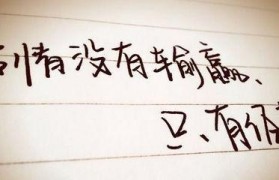 情没有输赢、
只、有